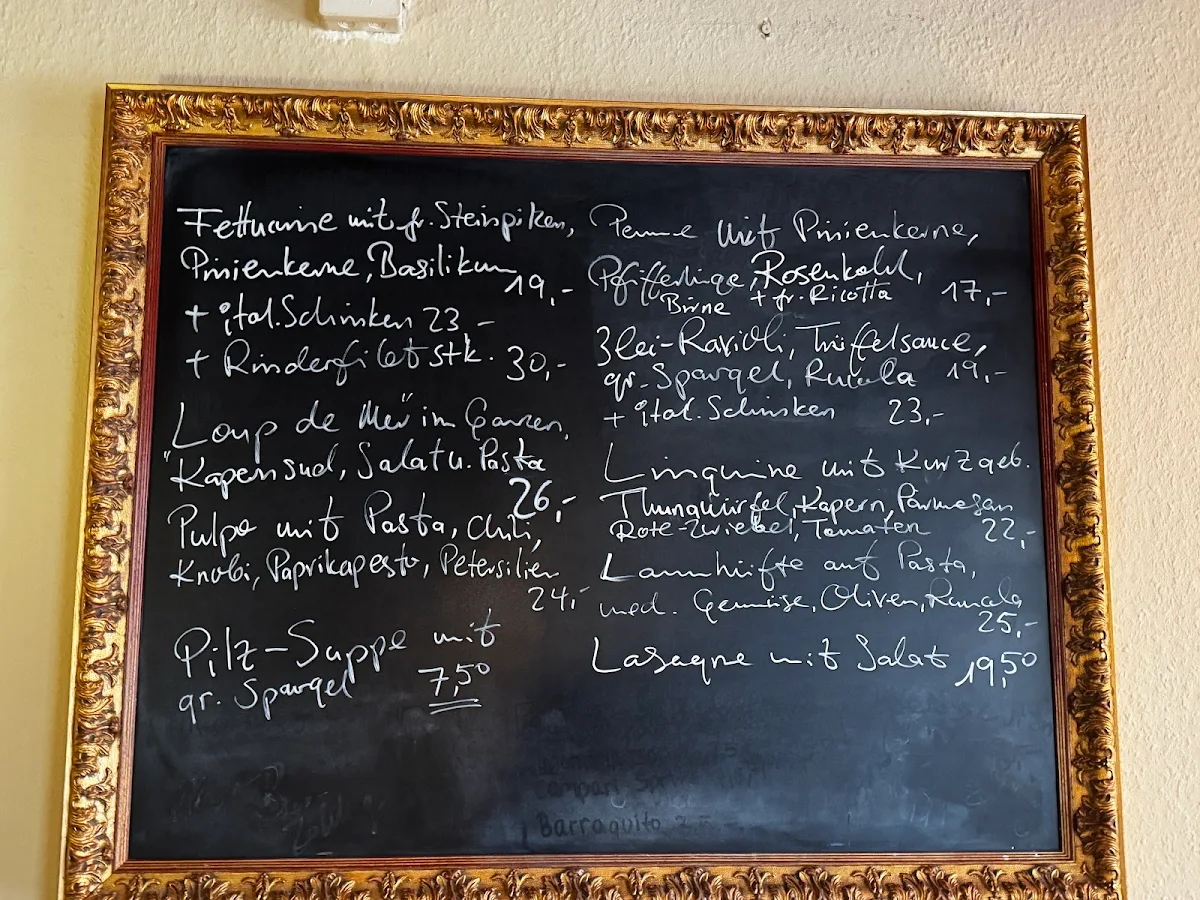 Fettuccine mit fr. Steinpilzen,
Pinienkerne, Basilikum
19,-
+ ital. Schinken 23,-
+ Rinderfilet stk. 30,-
Loup de Mer im Ganzen,
Kapernsud, Salat u. Pasta
26,-
Pulpo mit Pasta, Chili,
Knobi, Paprikapesto, Petersilien
24,-
Pilz-Suppe mit
gr. Spargel 7,50
Penne mit Pinienkerne,
Pfifferlinge, Rosenkohl,
Birne + fr. Ricotta 17,-
3lei-Ravioli, Trüffelsauce,
gr. Spargel, Rucola 19,-
+ ital. Schinken 23,-
Linguine mit Kurzgeb.
Thunwürfel, Kapern, Parmesan
Rote-Zwiebel, Tomaten 22,-
Lammhüfte auf Pasta,
med. Gemüse, Oliven, Rucola
25,-
Lasagne mit Salat 19,50
Campari
Barraquito